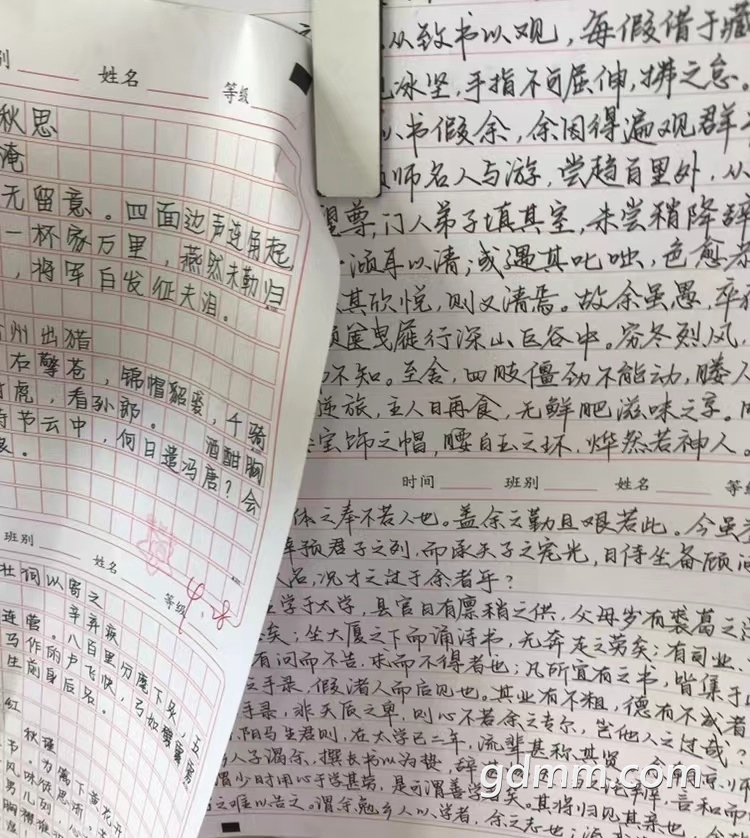 别 姓名 等级
秋思
淹
无留意。四面边声连角起
一杯家万里,燕然未勒归
,将军白发征夫泪。
州出猎
右擎苍,锦帽貂裘,千骑
虎,看孙郎。 酒酣胸
持节云中,何日遣冯唐?会
班别 姓名 等级
4.8
壮词以寄之
辛弃疾
连营。八百里分麾下炙,五
马作的卢飞快,弓如霹雳
生前身后名。
红 秋瑾
从致书以观,每假借于藏
冰坚,手指不可屈伸,拂之怠。
以书假余,余因得遍观群
师名人与游,尝趋百里外,从
望尊,门人弟子填其室,未尝稍降辞
倾耳以请;或遇其叱咄,色愈恭
其欣悦,则又请焉。故余虽愚,卒
箧曳屣行深山巨谷中。穷冬烈风,
不知。至舍,四肢僵劲不能动,媵人
逆旅,主人日再食,无鲜肥滋味之享。
宝饰之帽,腰白玉之环,烨然若神人。
时间 班别 姓名 等级
体之奉不若人也。盖余之勤且艰若此。今虽
预君子之列,而承天子之宠光,日侍坐备顾问
名,况才之过于余者乎?
学于太学,县官日有廪稍之供,父母岁有裘葛之
矣;坐大厦之下而诵诗书,无奔走之劳矣;有司业、
有问而不告,求而不得者也;凡所宜有之书,皆集于
之手录,假诸人而后见也。其业有不粗,德有不成者
手录,非天质之卑,则心不若余之专尔,岂他人之过哉?
阳马生君则,在太学已二年,流辈甚称其贤
人子谒余,撰长书以为贽,辞
谓少时用心于学甚劳,是可谓善学者矣。其将归见其亲也,
之难以告之。谓余勉乡人以学者,余之志也;
gdmm.com